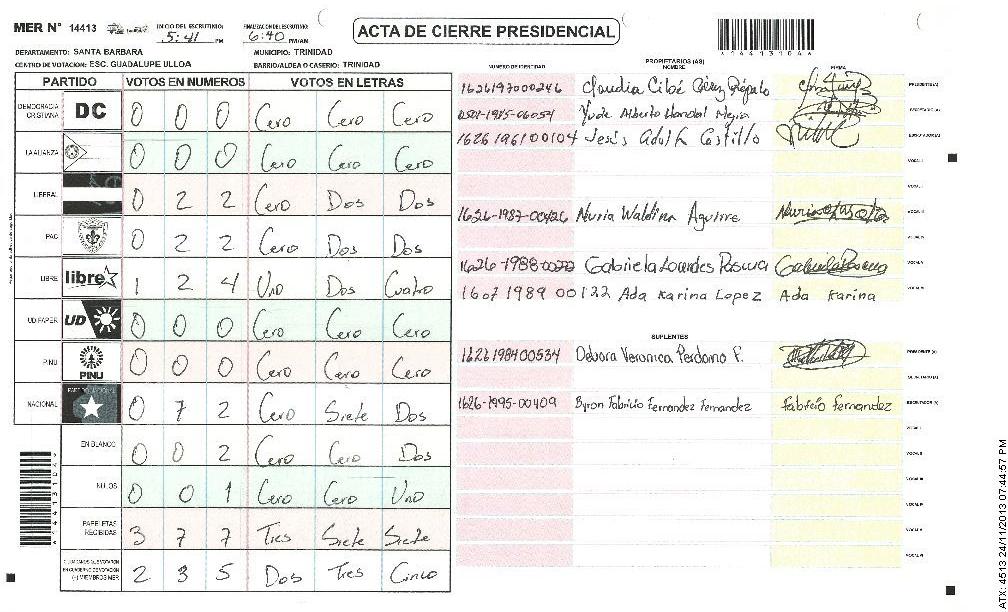 MER N° 14413 INICIO DEL ESCRUTINIO: 5:41 PM FINALIZACION DEL ESCRUTINIO: 6:40 PM/AM
ACTA DE CIERRE PRESIDENCIAL
DEPARTAMENTO: SANTA BARBARA MUNICIPIO: TRINIDAD
CENTRO DE VOTACION: ESC. GUADALUPE ULLOA BARRIO/ALDEA O CASERIO: TRINIDAD
PARTIDO VOTOS EN NUMEROS VOTOS EN LETRAS
DEMOCRACIA CRISTIANA DC 0 0 0 Cero Cero Cero
LA ALIANZA 0 0 0 Cero Cero Cero
LIBERAL 0 2 2 Cero Dos Dos
PAC 0 2 2 Cero Dos Dos
LIBRE libre 1 2 4 Uno Dos Cuatro
UD FAPER UD 0 0 0 Cero Cero Cero
PINU PINU 0 0 0 Cero Cero Cero
NACIONAL PARTIDO NACIONAL 0 7 2 Cero Siete Dos
EN BLANCO 0 0 2 Cero Cero Dos
NULOS 0 0 1 Cero Cero Uno
PAPELETAS RECIBIDAS 3 7 7 Tres Siete Siete
CIUDADANOS QUE VOTARON EN CUADERNO DE VOTACION (+) MIEMBROS MER 2 3 5 Dos Tres Cinco
PROPIETARIOS (AS)
NUMERO DE IDENTIDAD NOMBRE FIRMA
1626197000246 Claudia PRESIDENTE (A)
0501-1985-06054 Yude Alberto Handal Mejia SECRETARIO (A)
1626 1961 00104 Jesús Adolfo Castillo ESCRUTADOR (A)
VOCAL I
1626-1987-00426 Nuria Waldina Aguirre
1626-1988- Gabriela Lourdes Pascua
1607 1989 00122 Ada Karina Lopez Ada Karina
SUPLENTES
1626198400534 Debora Veronica Perdomo F. PRESIDENTE (A)
SECRETARIO (A)
1626-1995-00409 Byron Fabricio Fernandez Fernandez Fabricio Fernandez ESCRUTADOR (A)
VOCAL I
ATX: 4513 24/11/2013 07:44:57 PM